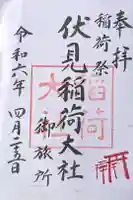 奉拝
稲荷祭
伏見稲荷大社
御旅所
令和六年四月二五日
稲荷
大社